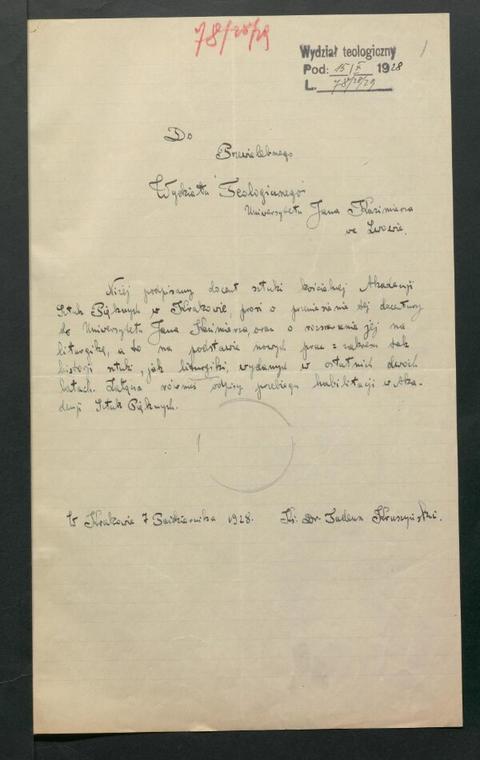 78/28/29
Wydział teologiczny
Pod: 15/X 1928
L. 78/28/29
1
Do
Przewielebnego
Wydziału Teologicznego
Uniwersytetu Jana Kazimierza
we Lwowie.
Niżej podpisany docent sztuki kościelnej Akademji
Sztuk Pięknych w Krakowie, prosi o przeniesienie tej docentury
do Uniwersytetu Jana Kazimierza, oraz o rozszerzenie jej na
liturgikę, a to na podstawie nowych prac z zakresu tak
historji sztuki jak liturgiki, wydanych w ostatnich dwóch
latach. Załącza również odpisy przebiegu habilitacji w Aka-
demji Sztuk Pięknych.
W Krakowie 7 Października 1928. Ks. Dr. Tadeusz Kruszyński.